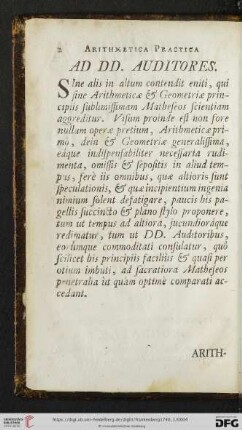 2 ARITHMETICA PRACTICA
AD DD. AUDITORES.
SIne alis in altum contendit eniti, qui
sine Arithmeticæ & Geometriæ prin-
cipiis sublimissimam Matheseos scientiam
aggreditur. Visum proinde est non fore
nullam operæ pretium, Arithmeticæ pri-
mò, dein & Geometriæ generalissima,
eáque indispensabiliter necessaria rudi-
menta, omissis & sepositis in aliud tem-
pus, ferè iis omnibus, quæ altioris sunt
speculationis, & quæ incipientium ingenia
nimium solent defatigare, paucis his pa-
gellis succincto & plano stylo proponere,
tum ut tempus ad altiora, jucundioráque
redimatur, tum ut DD. Auditoribus,
eorúmque commoditati consulatur, quò
scilicet his principiis faciliùs & quasi per
otium imbuti, ad sacratiora Matheseos
penetralia ut quàm optimè comparati ac-
cedant.
ARITH-